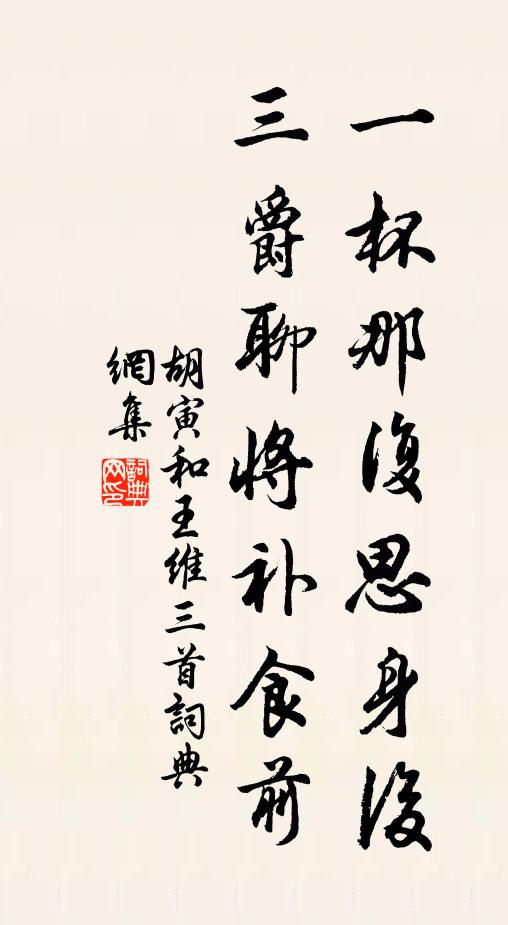 一杯那復思身後
三爵聊將补食前
胡寅和王維三首詞典
網集
詞典網印